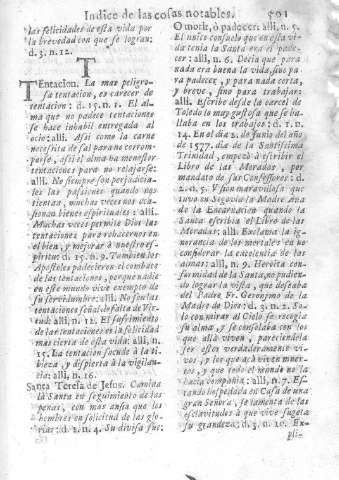 Indice de las cosas notables. 501
las felicidades de esta vida por
la brevedad con que se logran;
d. 3. n. 12.
T
TEntacion. La mas peligro-
sa tentacion, es carecer de
tentacion: d. 15. n. 1. El al-
ma que no padece tentaciones
se hace inhabil entregada al
ocio: alli. Assi como la carne
necessita de sal para no corrom-
perse, assi el alma ha menester
tentaciones para no relajarse:
alli. No siempre son perjudicia-
les las passiones quando nos
tientan, muchas veces nos oca-
sionan bienes espirituales: alli.
Muchas veces permite Dios las
tentaciones para robarecernos en
el bien, y mejorar à nuestro es-
piritu: d. 15. n. 9. Tambien los
Apostoles padecieron el combate
de las tentaciones, porque nadie
de este mundo vive exempto de
su servidumbre: alli. No son las
tentaciones señal de falta de Vir-
tud: alli, n. 12. El sufrimiento
de las tentaciones es la felicidad
mas cierta de esta vida: alli, n.
15. La tentacion sacude à la ti-
bieza, y dispierta à la vigilan-
cia: alli, n. 16.
Santa Teresa de Jesus. Camina
la Santa en seguimiento de las
penas, con mas ansia que los
hombres en solicitud de las glo-
rias: d. 3. n. 4. Su divisa fue:
O morir, ò padecer: alli, n. 5.
El unico consuelo que en esta vi-
da tenia la Santa era el pade-
cer: alli, n. 6. Decia que para
nada era buena la vida, sino pa-
ra padecer, y para nada corta,
y breve, sino para trabajar:
alli. Escribe desde la carcel de
Toledo lo muy gustosa que se ha-
llaba en los trabajos: d. 1. n.
14. En el dia 2. de Junio del año
de 1577. dia de la Santissima
Trinidad, empezò à escribir el
Libro de las Moradas, por
mandato de sus Confessores: d.
2. n. 5. Vision maravillosa que
tuvo en Segovia la Madre Ana
de la Encarnacion quando la
Santa escribia el Libro de las
Moradas: alli. Exclama la ig-
norancia de los mortales en no
considerar la excelencia de las
almas: alli, n. 9. Heroica con-
formidad de la Santa, no pudien-
do lograr la vista, que deseaba
del Padre Fr. Geronymo de la
Madre de Dios: d. 3. n. 2. So-
lo con mirar al Cielo se recogia
su alma, y se consolaba con los
que allà viven, pareciendola
ser estos verdaderamente vi-
vos, y los que acà viven muer-
tos, y que todo el mundo no la
hacia compañia: alli, n. 7. Es-
tando hospedada en Casa de una
gran Señora, se lamenta de las
esclavitudes à que vive sugeta
su grandeza: d. 3. n. 10. Ex-
pli-